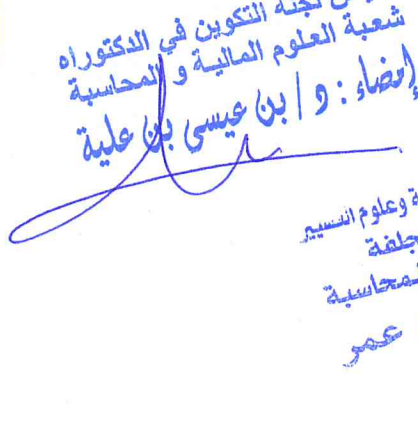 لجنة التكوين في الدكتوراه
شعبة العلوم المالية و المحاسبة
إمضاء : د / بن عيسى بن علية
وعلوم التسيير
جلفة
محاسبة
عمر